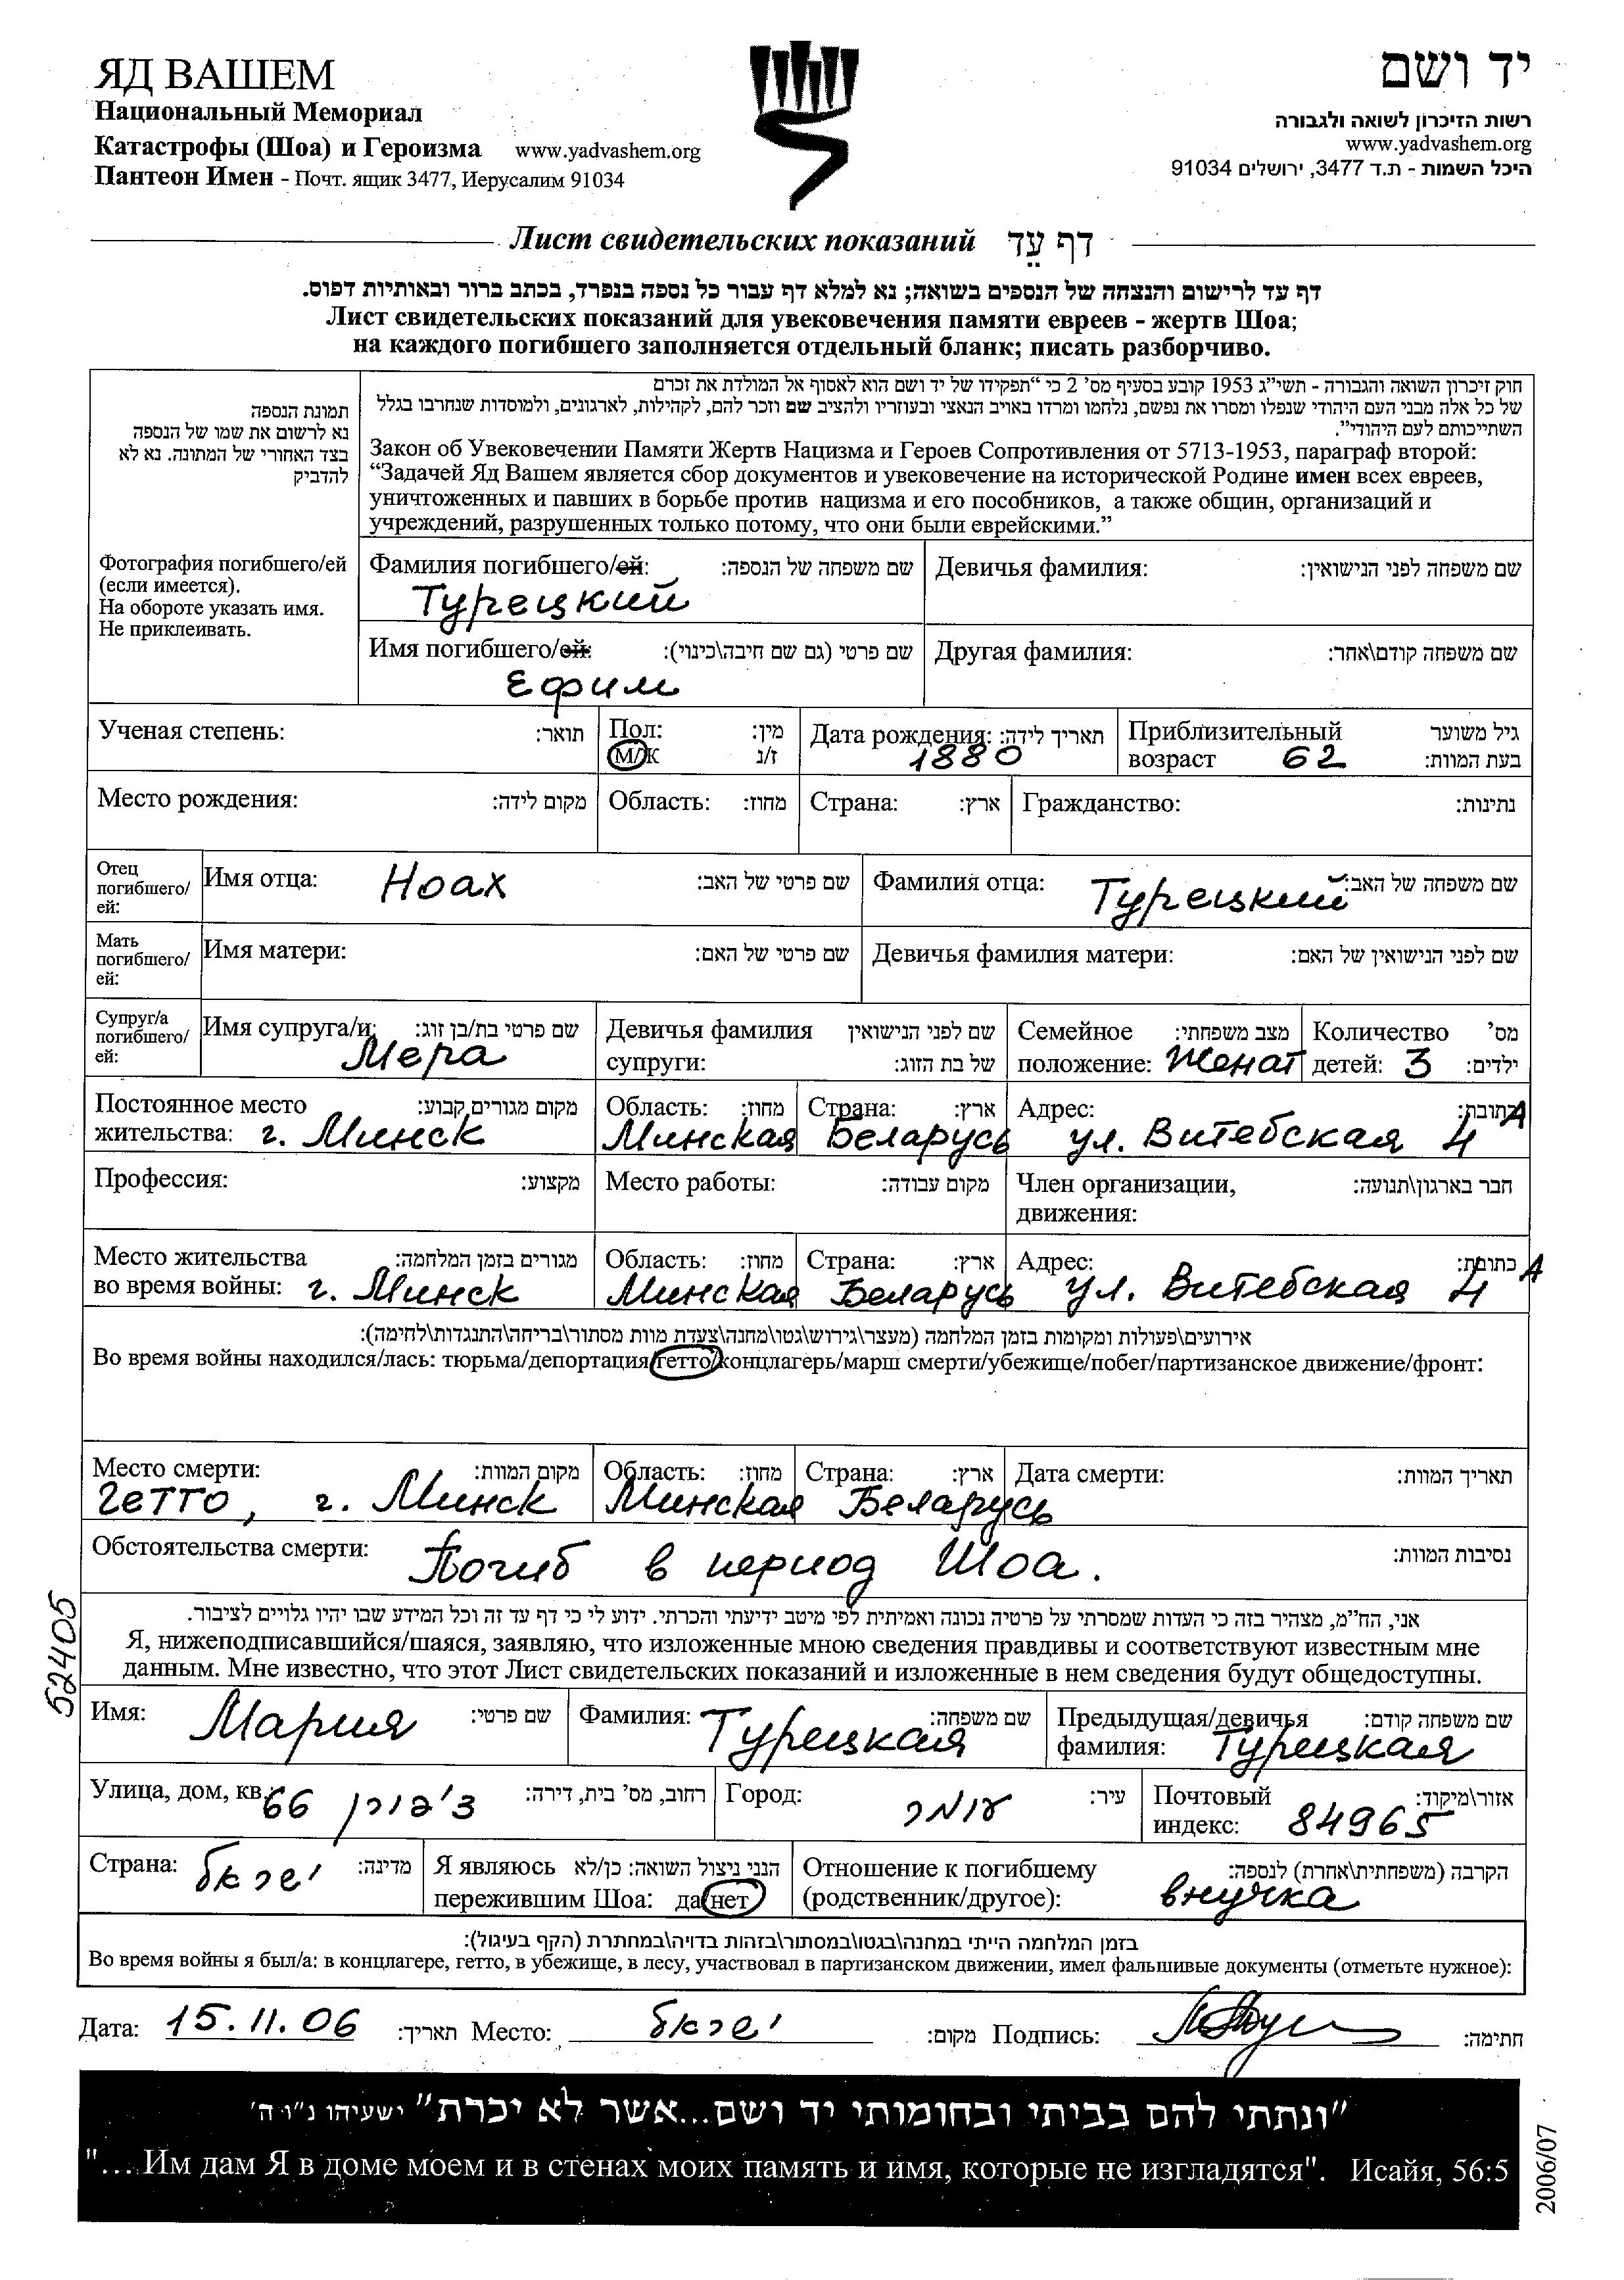 ЯД ВАШЕМ
Национальный Мемориал
Катастрофы (Шоа) и Героизма www.yadvashem.org
Пантеон Имен - Почт. ящик 3477, Иерусалим 91034
יד ושם
רשות הזיכרון לשואה ולגבורה
www.yadvashem.org
היכל השמות - ת.ד 3477, ירושלים 91034
Лист свидетельских показаний דף עֵד
דף עד לרישום והנצחה של הנספים בשואה; נא למלא דף עבור כל נספה בנפרד, בכתב ברור ובאותיות דפוס.
Лист свидетельских показаний для увековечения памяти евреев - жертв Шоа;
на каждого погибшего заполняется отдельный бланк; писать разборчиво.
תמונת הנספה
נא לרשום את שמו של הנספה
בצד האחורי של המתונה. נא לא
להדביק
Фотография погибшего/ей
(если имеется).
На обороте указать имя.
Не приклеивать.
חוק זיכרון השואה והגבורה - תשי"ג 1953 קובע בסעיף מס' 2 כי "תפקידו של יד ושם הוא לאסוף אל המולדת את זכרם
של כל אלה מבני העם היהודי שנפלו ומסרו את נפשם, נלחמו ומרדו באויב הנאצי ובעוזריו ולהציב שם וזכר להם, לקהילות, לארגונים, ולמוסדות שנחרבו בגלל
השתייכותם לעם היהודי".
Закон об Увековечении Памяти Жертв Нацизма и Героев Сопротивления от 5713-1953, параграф второй:
“Задачей Яд Вашем является сбор документов и увековечение на исторической Родине имен всех евреев,
уничтоженных и павших в борьбе против нацизма и его пособников, а также общин, организаций и
учреждений, разрушенных только потому, что они были еврейскими.”
Фамилия погибшего/ей: שם משפחה של הנספה:
Турецкий
Девичья фамилия: שם משפחה לפני הנישואין:
Имя погибшего/ей: שם פרטי (גם שם חיבה\כינוי):
Ефим
Другая фамилия: שם משפחה קודם\אחר:
Ученая степень: תואר:
Пол: מין:
М/Ж ז/נ
Дата рождения: תאריך לידה:
1880
Приблизительный גיל משוער
возраст 62 בעת המוות:
Место рождения: מקום לידה:
Область: מחוז:
Страна: ארץ:
Гражданство: נתינות:
Отец
погибшего/
ей:
Имя отца: Ноах שם פרטי של האב:
Фамилия отца: Турецкий שם משפחה של האב:
Мать
погибшего/
ей:
Имя матери: שם פרטי של האם:
Девичья фамилия матери: שם לפני הנישואין של האם:
Супруг/а
погибшего/
ей:
Имя супруга/и: שם פרטי בת/בן זוג:
Мера
Девичья фамилия שם לפני הנישואין
супруги: של בת הזוג:
Семейное מצב משפחתי:
положение: Женат
Количество מס'
детей: 3 ילדים:
Постоянное место מקום מגורים קבוע:
жительства: г. Минск
Область: מחוז:
Минская
Страна: ארץ:
Беларусь
Адрес: כתובת:
ул. Витебская 4 А
Профессия: מקצוע:
Место работы: מקום עבודה:
Член организации, חבר בארגון\תנועה:
движения:
Место жительства מגורים בזמן המלחמה:
во время войны: г. Минск
Область: מחוז:
Минская
Страна: ארץ:
Беларусь
Адрес: כתובת:
ул. Витебская 4 А
אירועים\פעולות ומקומות בזמן המלחמה (מעצר\גירוש\גטו\מחנה\צעדת מוות מסתור\בריחה\התנגדות\לחימה):
Во время войны находился/лась: тюрьма/депортация/гетто/концлагерь/марш смерти/убежище/побег/партизанское движение/фронт:
Место смерти: מקום המוות:
гетто, г. Минск
Область: מחוז:
Минская
Страна: ארץ:
Беларусь
Дата смерти: תאריך המוות:
Обстоятельства смерти: Погиб в период Шоа. נסיבות המוות:
אני, הח"מ, מצהיר בזה כי העדות שמסרתי על פרטיה נכונה ואמיתית לפי מיטב ידיעתי והכרתי. ידוע לי כי דף עד זה וכל המידע שבו יהיו גלויים לציבור.
Я, нижеподписавшийся/шаяся, заявляю, что изложенные мною сведения правдивы и соответствуют известным мне
данным. Мне известно, что этот Лист свидетельских показаний и изложенные в нем сведения будут общедоступны.
52405
Имя: Мария שם פרטי:
Фамилия: Турецкая שם משפחה:
Предыдущая/девичья שם משפחה קודם:
фамилия: Турецкая
Улица, дом, кв. 66 רחוב, מס' בית, דירה:
Город: עומר עיר:
Почтовый אזור\מיקוד:
индекс: 84965
Страна: ישראל מדינה:
Я являюсь הנני ניצול השואה: כן/לא
пережившим Шоа: да/нет
Отношение к погибшему הקרבה (משפחתית\אחרת) לנספה:
(родственник/другое): внучка
בזמן המלחמה הייתי במחנה\בגטו\במסתור\בזהות בדויה\במחתרת (הקף בעיגול):
Во время войны я был/а: в концлагере, гетто, в убежище, в лесу, участвовал в партизанском движении, имел фальшивые документы (отметьте нужное):
Дата: 15.11.06 תאריך: Место: ישראל מקום: Подпись: חתימה:
"ונתתי להם בביתי ובחומותי יד ושם...אשר לא יכרת" ישעיהו נ"ו ה'
"... Им дам Я в доме моем и в стенах моих память и имя, которые не изгладятся". Исайя, 56:5
2006/07